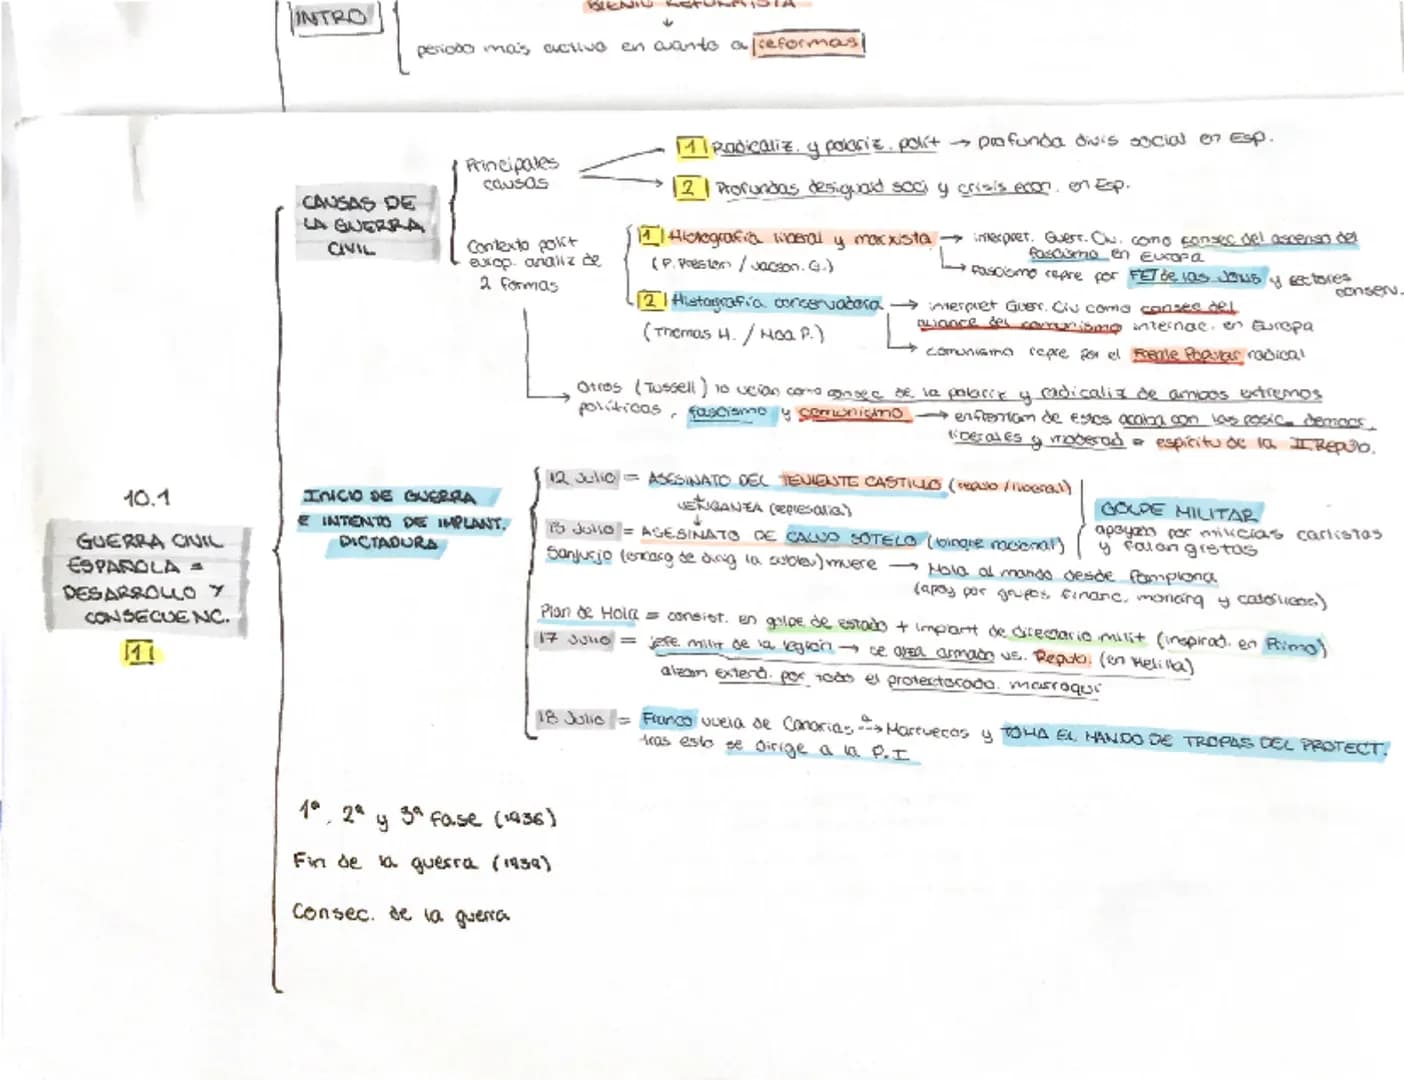 INTRO
BIENIO REFORMISTA
↓
periodo mas activo en cuanto a reformas
10.1
GUERRA CIVIL
ESPAÑOLA =
DESARROLLO Y
CONSECUENC.
1
CAUSAS DE
LA GUERRA
CIVIL
Principales
causas
1 Radicaliz. y polariz. polít → profunda divis social en Esp.
2 Profundas desiguald soci y crisis econ. en Esp.
Contexto polít
europ. analiz de
2 formas
1 Histografía liberal y marxista → interpret. Guerr. Civ. como consec del ascenso del
fascismo en Europa
(P. Preston / Jacson. G.)
→ Fascismo repre por FET de las JONS y sectores
conserv.
2 Histografía conservadora → interpret Guerr. Civ como consec del
avance del comunismo internac. en Europa
(Thomas H. / Moa P.)
→ comunismo repre por el Frente Popular radical
→ Otros (Tussell) lo veian como consec de la polariz y radicaliz de ambos extremos
políticos, fascismo y comunismo → enfrentam de estos acaba con las posic. democr.
liberales y moderad = espíritu de la II Repub.
INICIO DE GUERRA
E INTENTO DE IMPLANT.
DICTADURA
12 Julio = ASESINATO DEL TENIENTE CASTILLO (repub / liberal)
VENGANZA (represalia)
↓
13 Julio = ASESINATO DE CALVO SOTELO (bloque nacional)
GOLPE MILITAR
apoyado por milicias carlistas
y falangistas
Sanjurjo (encarg de dirig la sublev) muere → Mola al mando desde Pamplona
(apoy por grupos financ, monárq y católicos)
Plan de Mola = consist. en golpe de estado + implant de directorio milit (inspirad. en Primo)
17 Julio = jefe milit de la legión → se alza armado vs. Repub. (en Melilla)
alzam extend. por todo el protectorado marroquí
18 Julio = Franco vuela de Canarias a → Marruecos y TOMA EL MANDO DE TROPAS DEL PROTECT.
tras esto se dirige a la P.I
1ª, 2ª y 3ª Fase (1936)
Fin de la guerra (1939)
Consec. de la guerra